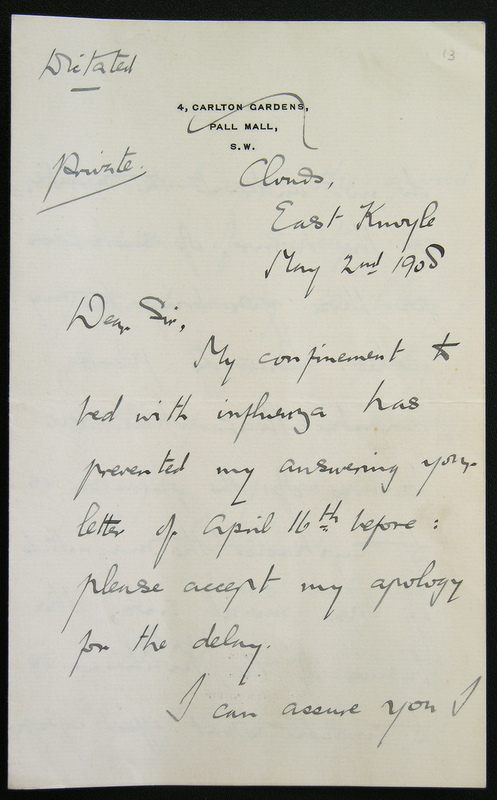 Dictated
13
4, CARLTON GARDENS,
PALL MALL,
S.W.
Private.
Clouds,
East Knoyle
May 2nd 1908
Dear Sir,
My confinement to
bed with influenza has
prevented my answering your
letter of April 16th before:
please accept my apology
for the delay.
I can assure you I